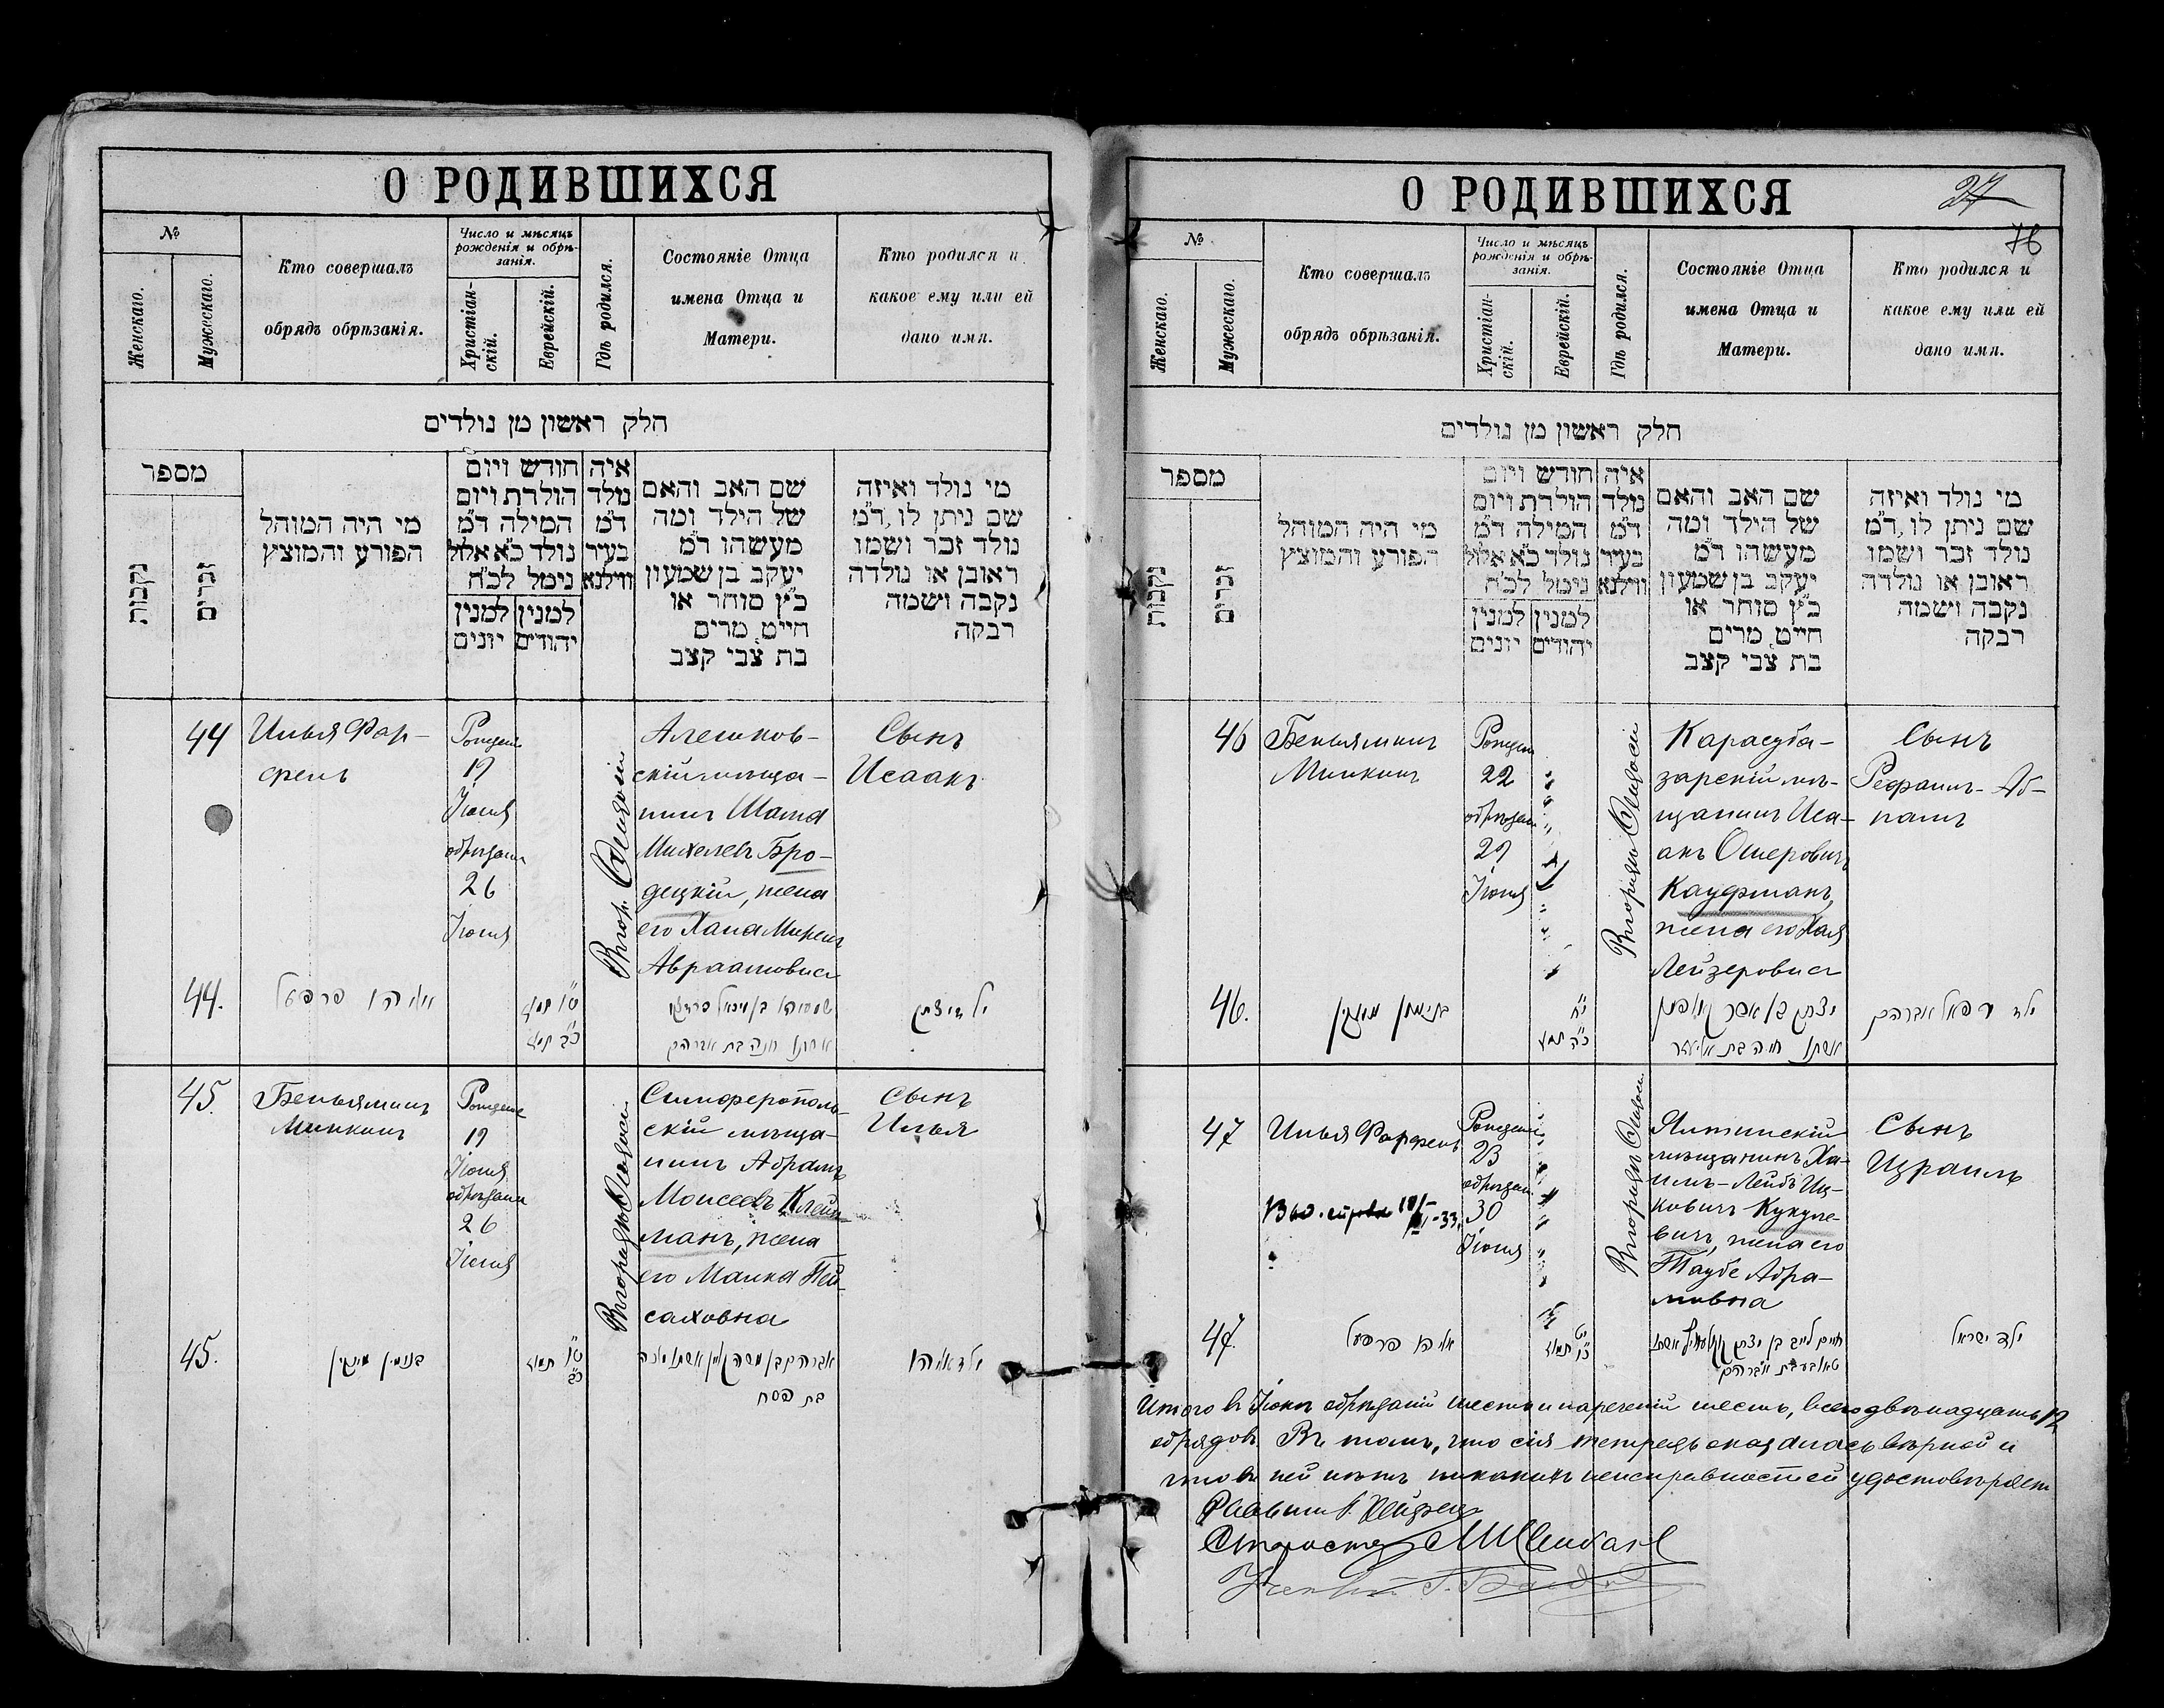 О РОДИВШИХСЯ
№
Женскаго.
Мужескаго.
Кто совершалъ
обрядъ обрѣзанія.
Число и мѣсяцъ
рожденія и обрѣ-
занія.
Христіан-
скій.
Еврейскій.
Гдѣ родился.
Состояніе Отца
имена Отца и
Матери.
Кто родился и
какое ему или ей
дано имя.
חלק ראשון מן נולדים
מספר
נקבות
זכרים
מי היה המוהל
הפורע והמוצץ
חודש ויום
הולדת ויום
המילה ד״מ
נולד כ״א אלול
נימל לכ״ח
למנין
יהודים
למנין
יונים
איה
נולד
ד״מ
בעיר
ווילנא
שם האב והאם
של הילד ומה
מעשהו ד״מ
יעקב בן שמעון
כ״ץ סוחר או
חייט מרים
בת צבי קצב
מי נולד ואיזה
שם ניתן לו ד״מ
נולד זכר ושמו
ראובן או נולדה
נקבה ושמה
רבקה
44
Илья Фар-
фель
19
Іюня
26
Іюня
Алешков-
скій мѣща-
нинъ
Михелевъ Бро-
децкій, жена
его Хана
Сынъ
Исаакъ
44.
אשתו חנה בת אברהם
ילד יצחק
45.
Беньяминъ
Минкинъ
19
Іюня
26
Іюня
Симферополь-
скій мѣща-
нинъ Абрамъ
Моисеевъ Клейн-
манъ, жена
его Малка Пей-
саховна
Сынъ
Илья
45.
בנימין מינקין
בת פסח
ילד אליהו
О РОДИВШИХСЯ
27
76
№
Женскаго.
Мужескаго.
Кто совершалъ
обрядъ обрѣзанія.
Число и мѣсяцъ
рожденія и обрѣ-
занія.
Христіан-
скій.
Еврейскій.
Гдѣ родился.
Состояніе Отца
имена Отца и
Матери.
Кто родился и
какое ему или ей
дано имя.
חלק ראשון מן נולדים
מספר
נקבות
זכרים
מי היה המוהל
הפורע והמוצץ
חודש ויום
הולדת ויום
המילה ד״מ
נולד כ״א אלול
נימל לכ״ח
למנין
יהודים
למנין
יונים
איה
נולד
ד״מ
בעיר
ווילנא
שם האב והאם
של הילד ומה
מעשהו ד״מ
יעקב בן שמעון
כ״ץ סוחר או
חייט מרים
בת צבי קצב
מי נולד ואיזה
שם ניתן לו ד״מ
נולד זכר ושמו
ראובן או נולדה
נקבה ושמה
רבקה
46
Беньяминъ
Минкинъ
22
29
Іюня
Карасуба-
зарскій мѣ-
щанинъ Иса-
акъ Ошеровичъ
Кауфманъ,
жена его Хая
Лейзеровна
Сынъ
Рефаилъ-Аб-
рамъ
46.
בנימין מינקין
אשתו חיה בת אליעזר
ילד רפאל אברהם
47
Илья Фарфель
23
30
Іюня
Ялтинскій
мѣщанинъ Ха-
имъ-Лейбъ Иц-
ковичъ Кукуле-
вичъ, жена его
Таубе Абра-
мовна
Сынъ
Израиль
47.
ילד ישראל
Итого въ Іюнѣ обрѣзаній шесть и нареченій шесть, всего двѣнадцать 12
обрядовъ. Въ томъ, что сія тетрадь оказалась вѣрной и
что въ ней нѣтъ никакихъ неисправностей удостовѣряетъ
Раввинъ
Староста